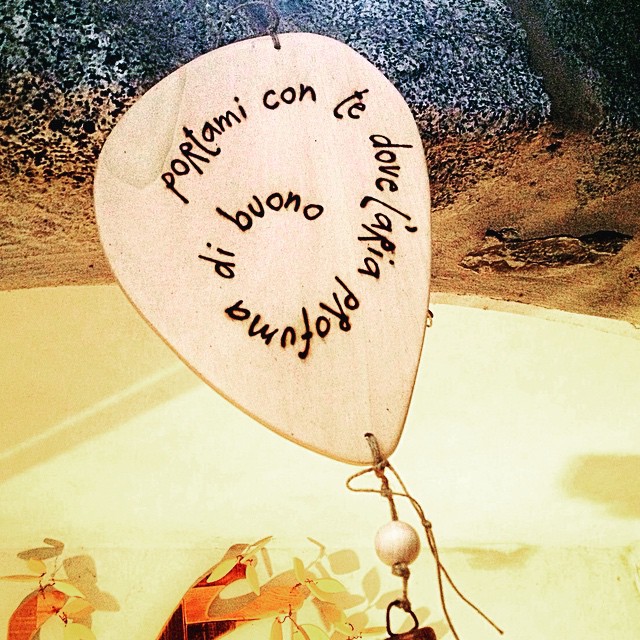 portami con te dove l'aria profuma di buono